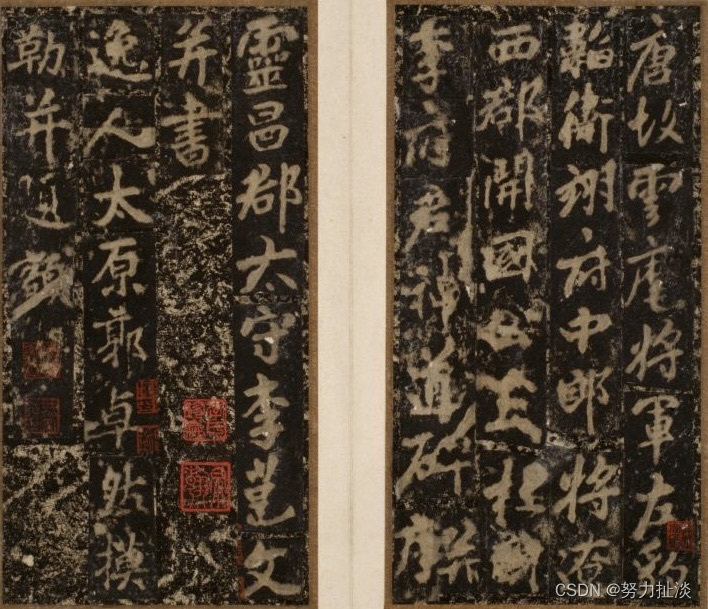 唐故雲麾將軍左豹
韜衛翊府中郎將遼
西郡開國公上柱國
李府君神道碑并序
靈昌郡太守李邕文
并書
逸人太原郭卓然摸
勒并題額
CSDN @努力扯淡